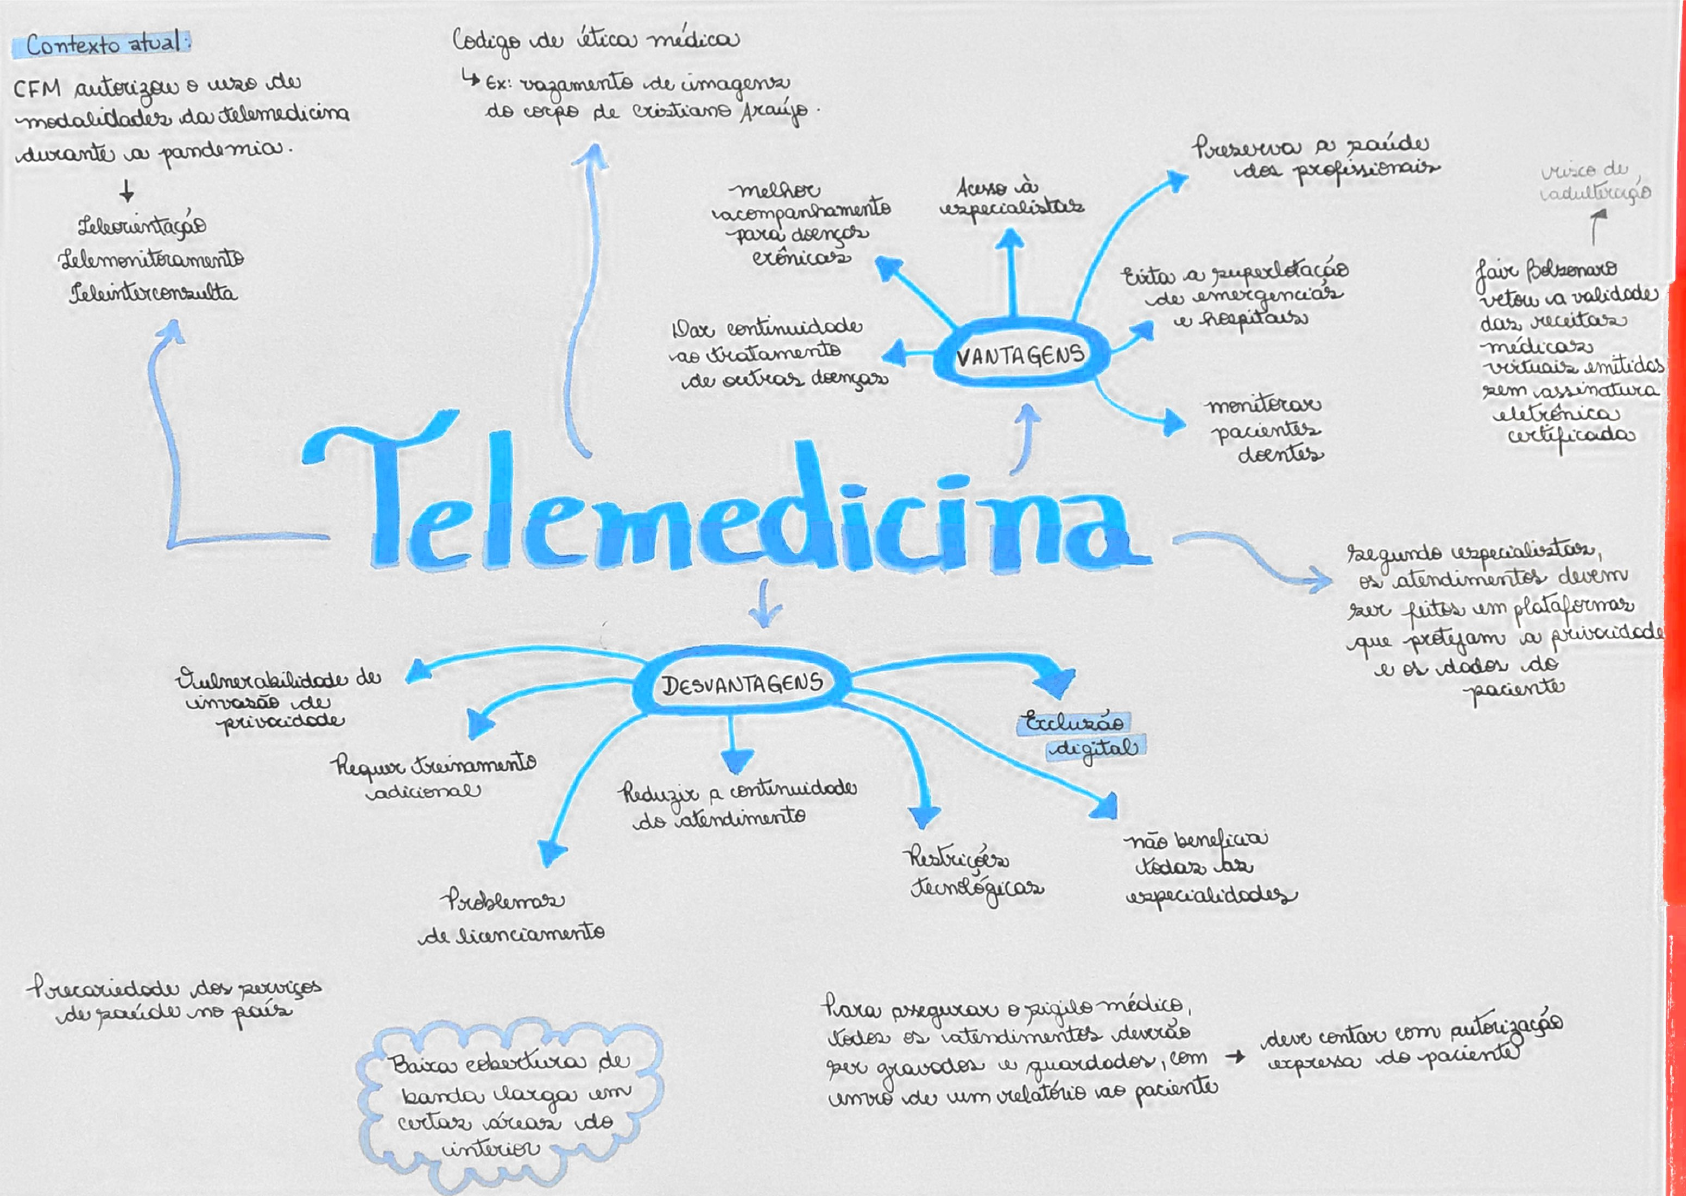 Contexto atual:
CFM autorizou o uso de
modalidades da telemedicina
durante a pandemia.
Teleorientação
Telemonitoramento
Teleinterconsulta
Codigo de ética médica
↳ Ex: vazamento de imagens
do corpo de Cristiano Araújo.
melhor
acompanhamento
para doenças
crônicas
Acesso à
especialistas
Preserva a saúde
dos profissionais
Evita a superlotação
de emergencias
e hospitais
Dar continuidade
ao tratamento
de outras doenças
VANTAGENS
monitorar
pacientes
doentes
risco de
adulteração
Jair Bolsonaro
vetou a validade
das receitas
médicas
virtuais emitidas
sem assinatura
eletrônica
certificada
Telemedicina
Segundo especialistas,
os atendimentos devem
ser feitos em plataformas
que protejam a privacidade
e os dados do
paciente
DESVANTAGENS
Vulnerabilidade de
invasão de
privacidade
Requer treinamento
adicional
Problemas
de licenciamento
Reduzir a continuidade
do atendimento
Restrições
tecnológicas
não beneficia
todas as
especialidades
Exclusão
digital
Precariedade dos serviços
de saúde no país
Baixa cobertura de
banda larga em
certas áreas do
interior
Para assegurar o sigilo médico,
todos os atendimentos deverão
ser gravados e guardados, com →
envio de um relatório ao paciente
deve contar com autorização
expressa do paciente